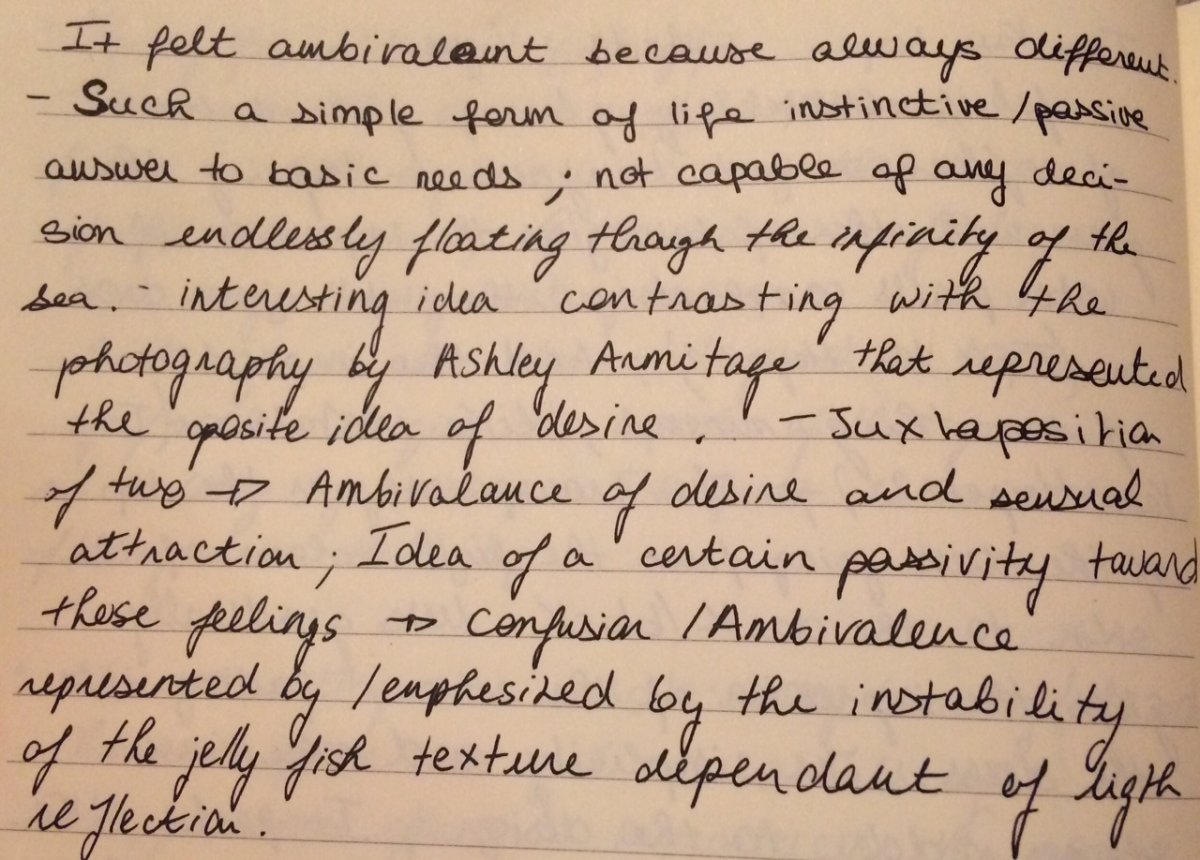 It felt ambivalent because always different.
- Such a simple form of life instinctive / passive
answer to basic needs ; not capable of any deci-
sion endlessly floating through the infinity of the
sea. - interesting idea contrasting with the
photography by Ashley Armitage that represented
the oposite idea of desire. - Juxtaposition
of two → Ambivalance of desire and sensual
attraction ; Idea of a certain passivity toward
these feelings → Confusion / Ambivalence
represented by / emphesized by the instability
of the jelly fish texture dependant of ligth
reflection.